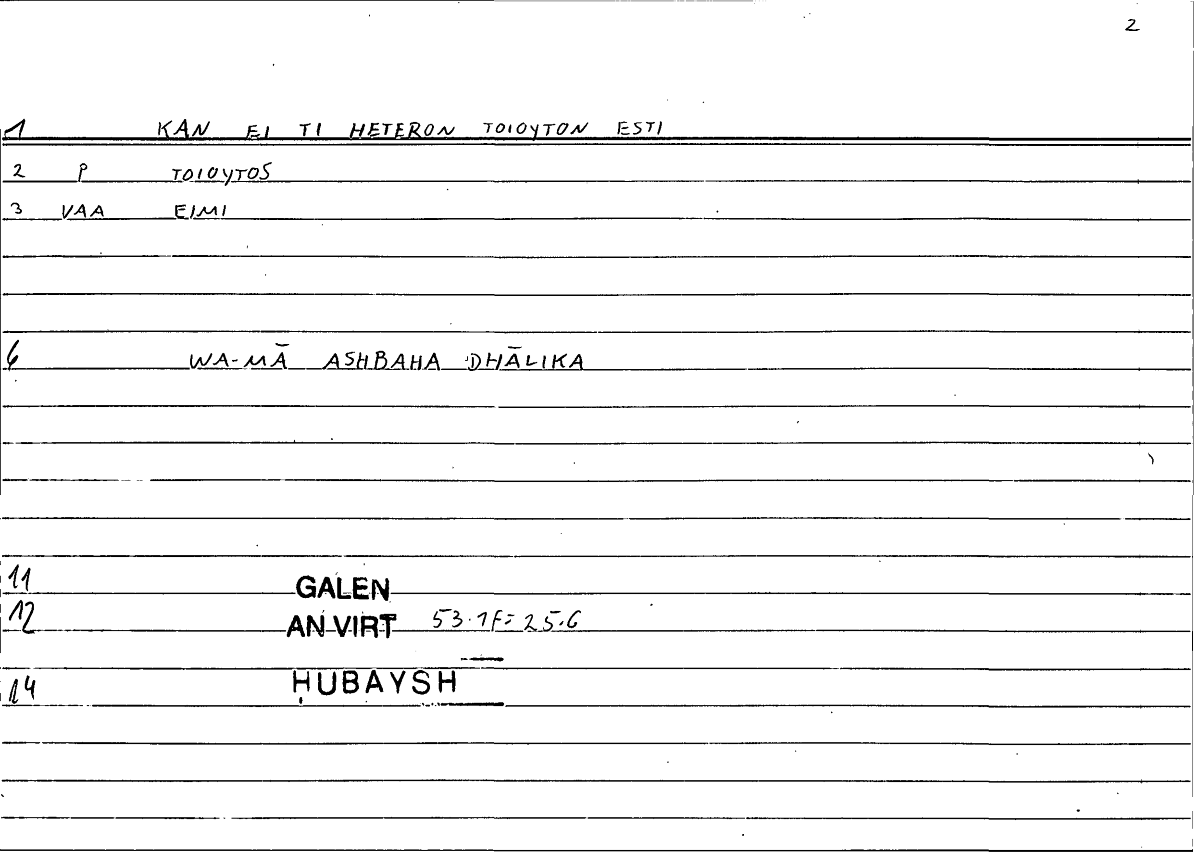 2
1 KAN EI TI HETERON TOIOYTON ESTI
2 P TOIOYTOS
3 VAA EIMI
6 WA-MĀ ASHBAHA DHĀLIKA
11 GALEN
12 AN VIRT 53.1F= 25.6
14 ḤUBAYSH